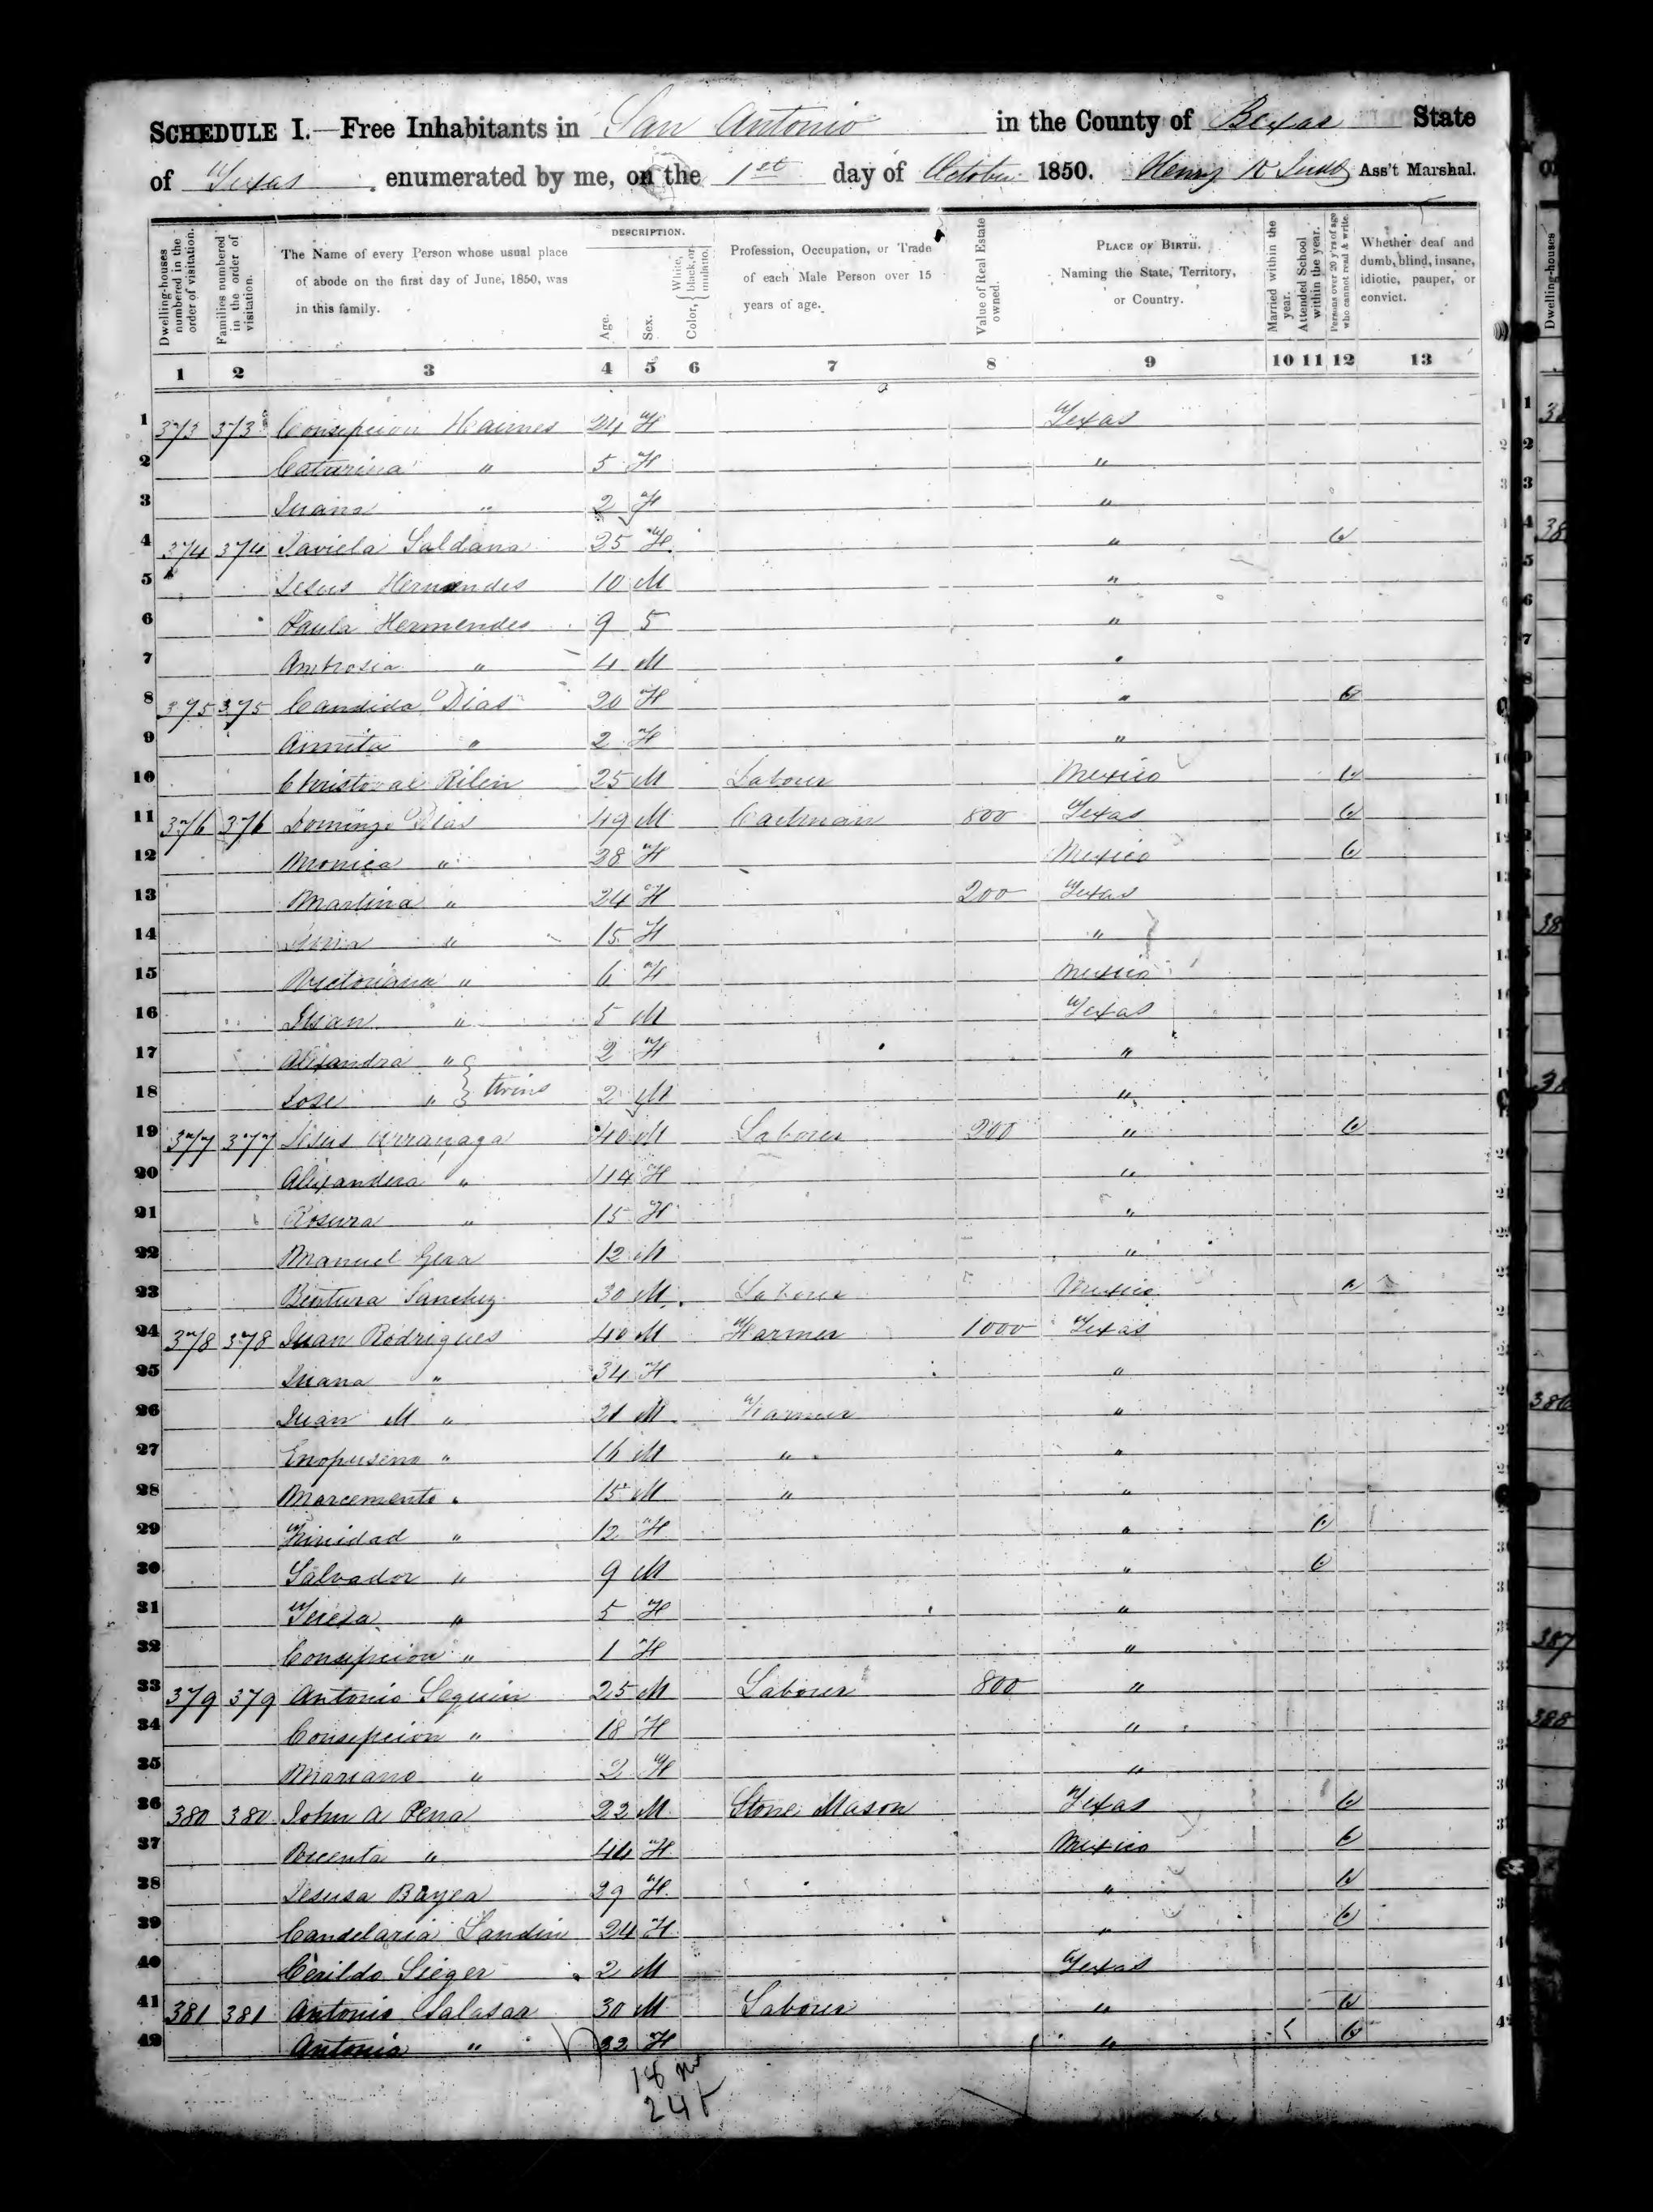 SCHEDULE I.—Free Inhabitants in San Antonio in the County of Bexar State
of Texas enumerated by me, on the 1st day of October 1850. Henry Ass't Marshal.
Dwelling-houses numbered in the order of visitation.
Families numbered in the order of visitation.
The Name of every Person whose usual place of abode on the first day of June, 1850, was in this family.
DESCRIPTION.
Age.
Sex.
Color, { White, black, or mulatto.
Profession, Occupation, or Trade of each Male Person over 15 years of age.
Value of Real Estate owned.
PLACE OF BIRTH. Naming the State, Territory, or Country.
Married within the year.
Attended School within the year.
Persons over 20 y'rs of age who cannot read & write.
Whether deaf and dumb, blind, insane, idiotic, pauper, or convict.
1 2 3 4 5 6 7 8 9 10 11 12 13
1 373 373 Consepcion Haines 24 F Texas
2 Catarina " 5 F "
3 Juana " 2 F "
4 374 374 Saldana 25 F "
5 Jesus Hernendes 10 M "
6 Paula Hermendes 9 5 "
7 Ambrosia " 4 M "
8 375 375 Candida Dias 20 F "
9 Annita " 2 F "
10 Christoval 25 M Laborer Mexico
11 376 376 Domingo Dias 49 M Cartman 800 Texas
12 Monica " 28 F Mexico
13 Martina " 24 F 200 Texas
14 " 15 F "
15 Victoriana " 6 F Mexico
16 Juan " 5 M Texas
17 Alejandra " 2 F "
18 Jose " } twins 2 M "
19 377 377 Jesus Urranaga 40 M Laborer 200 "
20 Alexandera " F "
21 Rosura " 15 F "
22 Manuel 12 M "
23 Bentura Sanchez 30 M Laborer Mexico
24 378 378 Juan Rodrigues 40 M Farmer 1000 Texas
25 Juana " 34 F "
26 Juan M " 21 M Farmer "
27 " 16 M " "
28 " 15 M " "
29 Trinidad " 12 F "
30 Salvador " 9 M "
31 Teresa " 5 F "
32 Consepcion " 1 F "
33 379 379 Antonio Seguin 25 M Laborer 800 "
34 Consepcion " 18 F "
35 Mariano " 2 F "
36 380 380 John A Pena 22 M Stone Mason Texas
37 Vicenta " 44 F Mexico
38 Jesusa 29 F "
39 Candelaria Sandin 24 F "
40 Cerildo Sieger 2 M Texas
41 381 381 Antonio Salasar 30 M Laborer "
42 Antonia " 32 F "
18 m
24 f